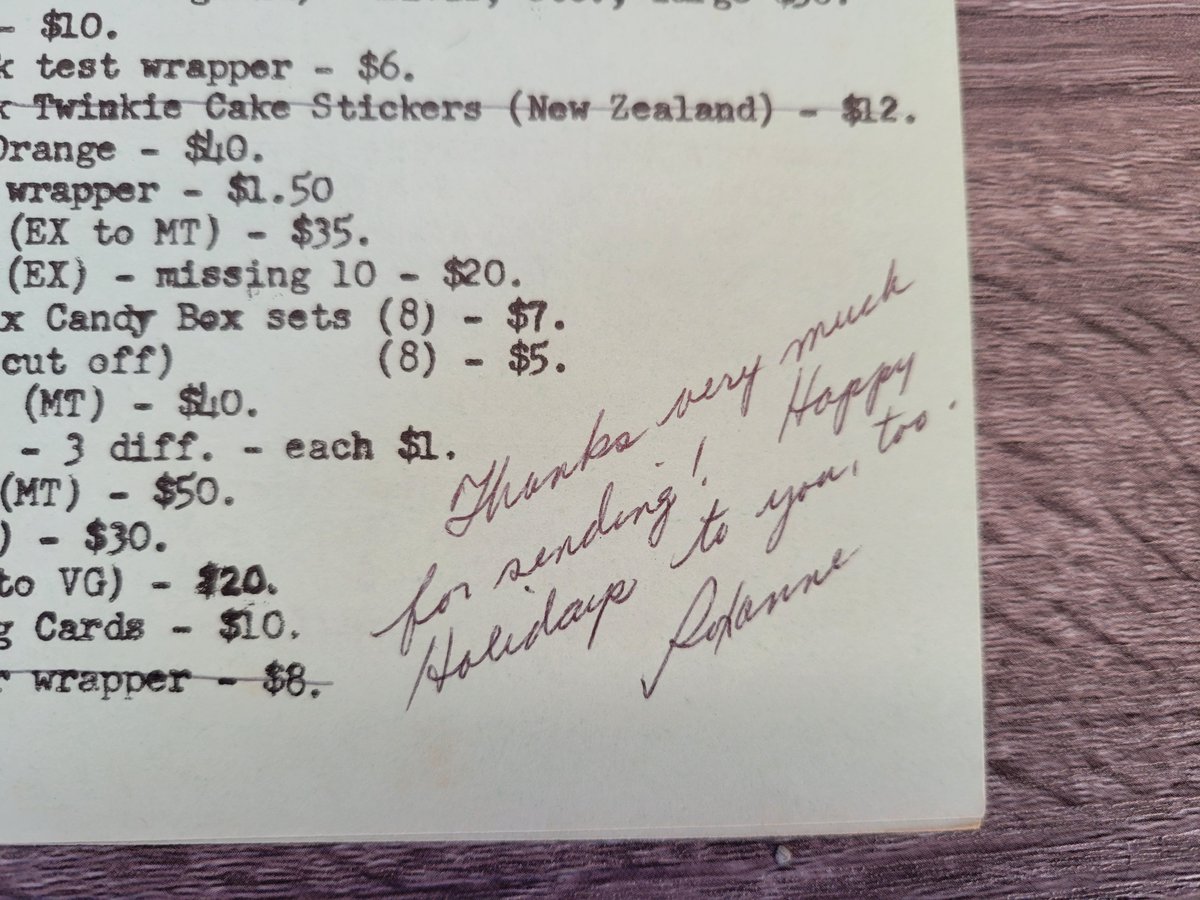 - $10.
test wrapper - $6.
Twinkie Cake Stickers (New Zealand) - $12.
Orange - $40.
wrapper - $1.50
(EX to MT) - $35.
(EX) - missing 10 - $20.
x Candy Box sets (8) - $7.
cut off) (8) - $5.
(MT) - $40.
- 3 diff. - each $1.
(MT) - $50.
) - $30.
to VG) - $20.
g Cards - $10.
r wrapper - $8.
Thanks very much
for sending! Happy
Holidays to you, too.
Roxanne